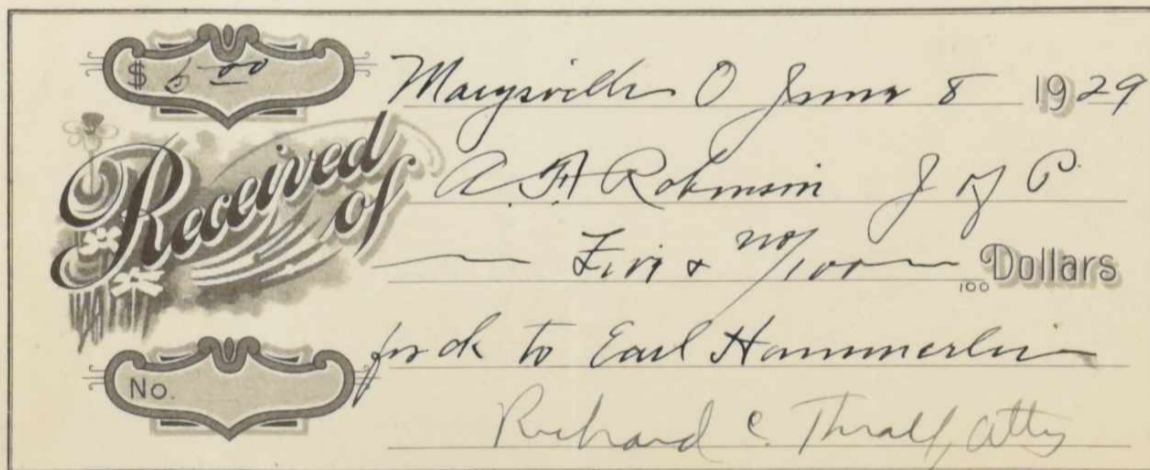 $ 5 00
Marysville O June 8 1929
Received of A. H Robinson J of P
Five & no/100 100 Dollars
for ck to Earl Hammerlin
No.
Richard C. Thrall, Atty